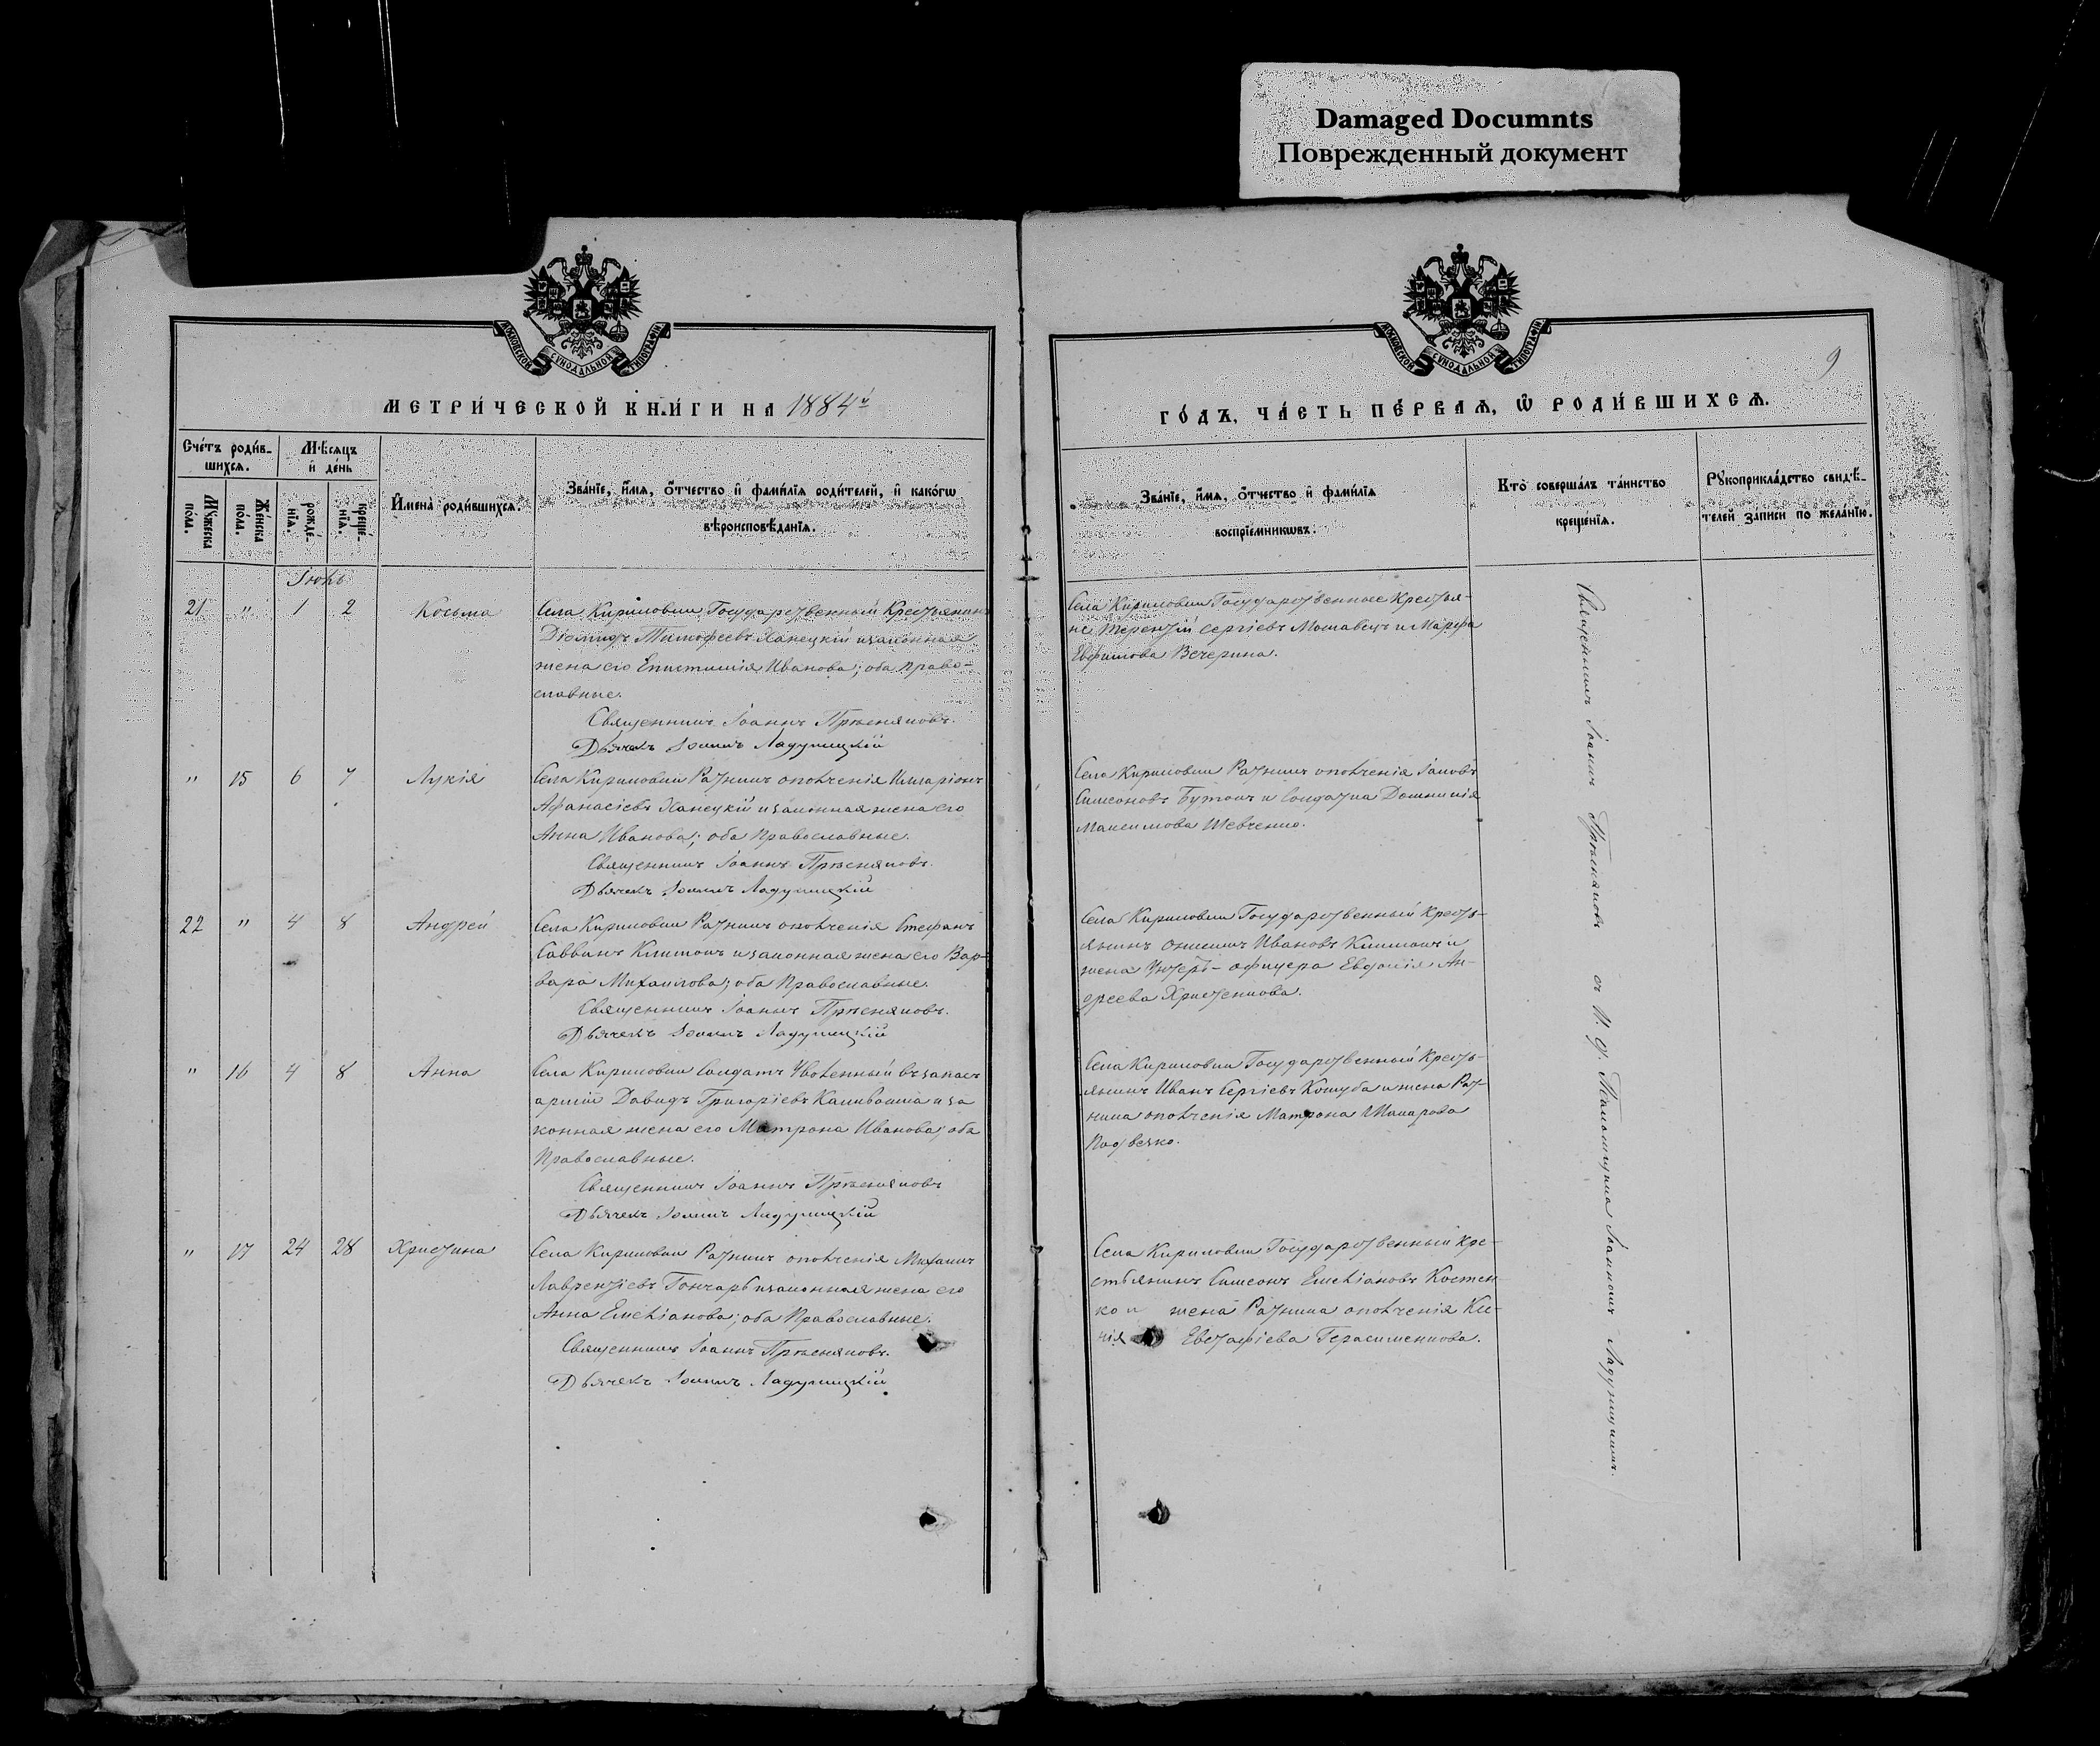 Damaged Documnts
Поврежденный документ
МОСКОВСКОЙ СѴНОДАЛЬНОЙ ТИПОГРАФІИ
МЕТРИ́ЧЕСКОЙ КНИ́ГИ НА 1884й
Сче́тъ роди́в-
шихсѧ.
Мѣ́сѧцъ
и҆ де́нь
Мꙋ́жеска
по́ла.
Же́нска
по́ла.
рожде́-
нїѧ.
креще́-
нїѧ.
И҆мена̀ роди́вшихсѧ.
Зва́нїе, и҆́мѧ, ѻ҆́тчество и҆ фами́лїѧ роди́телей, и҆ како́гѡ
вѣроисповѣ́данїѧ.
Іюнь
21 " 1 2 Косьма
Села Кириловки Государственный Крестьянинъ
Діомидъ Тимофеевъ Ханецкій и законная
жена его Епистимія Иванова; оба право-
славные.
Священникъ Іоаннъ Прѣсняковъ.
Дьячекъ Іоаннъ Ладухицкій
" 15 6 7 Лукія
Села Кириловки Ратникъ ополченія Илларіонъ
Афанасіевъ Ханецкій и законная жена его
Анна Иванова; оба Православные.
Священникъ Іоаннъ Прѣсняковъ.
Дьячекъ Іоаннъ Ладухицкій
22 " 4 8 Андрей
Села Кириловки Ратникъ ополченія Стефанъ
Саввинъ Климокъ и законная жена его Вар-
вара Михаилова; оба Православные.
Священникъ Іоаннъ Прѣсняковъ.
Дьячекъ Іоаннъ Ладухицкій
" 16 4 8 Анна
Села Кириловки Солдатъ Уволенный въ запасъ
арміи Давидъ Григоріевъ и за
конная жена его Матрона Иванова; оба
Православные.
Священникъ Іоаннъ Прѣсняковъ
Дьячекъ Іоаннъ Ладухицкій
" 17 24 28 Христина
Села Кириловки Ратникъ ополченія Михаилъ
Лаврентіевъ Гончаръ и законная жена его
Анна Емеліанова; оба Православные.
Священникъ Іоаннъ Прѣсняковъ.
Дьячекъ Іоаннъ Ладухицкій
МОСКОВСКОЙ СѴНОДАЛЬНОЙ ТИПОГРАФІИ
9
ГО́ДЪ, ЧА́СТЬ ПЕ́РВАѦ, Ѽ РОДИ́ВШИХСѦ.
Зва́нїе, и҆́мѧ, ѻ҆́тчество и҆ фами́лїѧ
воспрїе́мникѡвъ.
Кто̀ соверша́лъ та́инство
креще́нїѧ.
Рꙋкоприкла́дство свидѣ́-
телей за́писи по жела́нїю.
Села Кириловки Государственные Крестья-
не Терентій Сергіевъ Мошавецъ и Марфа
Евфимова Вечерина.
Села Кириловки Ратникъ ополченія Іаковъ
Симеоновъ Бутокъ и Солдатка Домникія
Максимова Шевченко.
Села Кириловки Государственный Кресть-
янинъ Онисимъ Ивановъ Климокъ и
жена Унтеръ-офицера Евдокія Ан-
дреева Христенкова.
Села Кириловки Государственный Кресть-
янинъ Иванъ Сергіевъ Кошуба и жена Рат-
ника ополченія Матрона Макарова
Села Кириловки Государственный Кре-
стьянинъ Симеонъ Емеліановъ Костен
ко и жена Ратника ополченія Ки-
нія Евстафіева Герасименкова.
Священникъ Іоаннъ Прѣсняковъ съ И. д. Псаломщика Іоанномъ Ладухицкимъ.